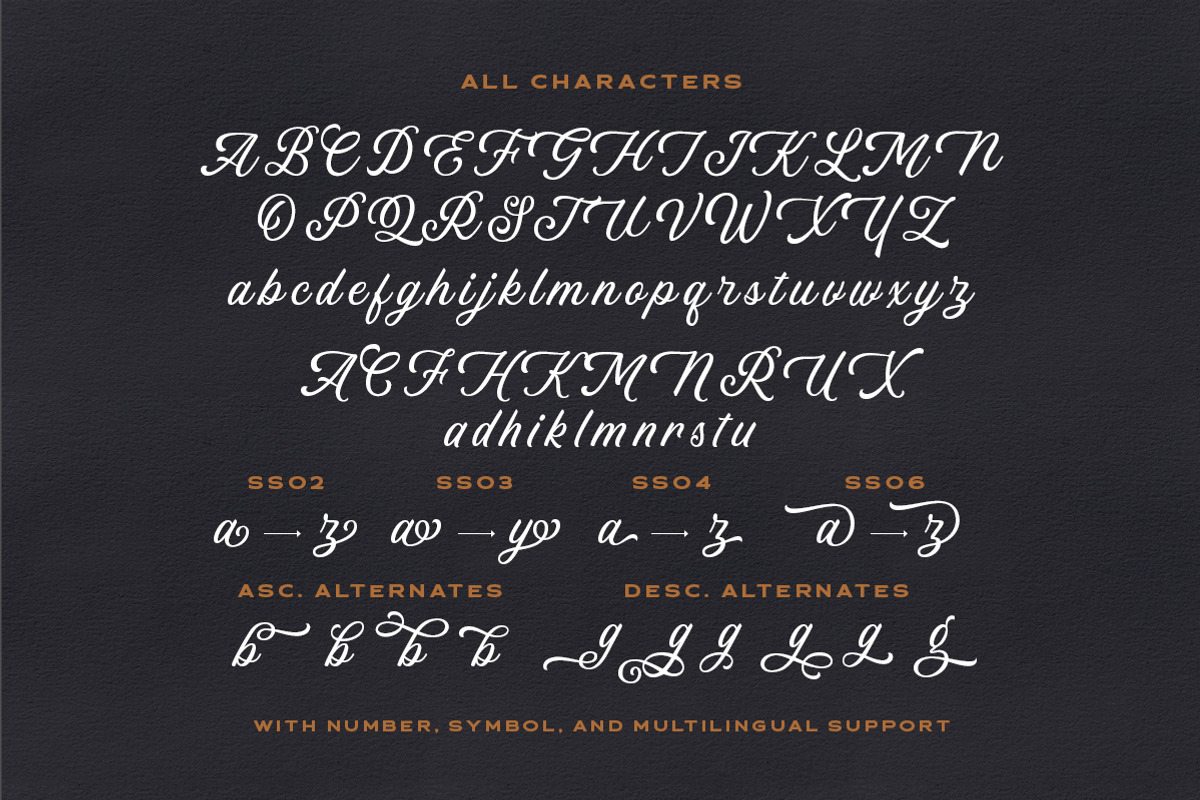 ALL CHARACTERS
A B C D E F G H I J K L M N
O P Q R S T U V W X Y Z
a b c d e f g h i j k l m n o p q r s t u v w x y z
A C F H K M N R U X
a d h i k l m n r s t u
SS02 SS03 SS04 SS06
a → z a → y a → z a → z
ASC. ALTERNATES DESC. ALTERNATES
b b b b g g g g g g
WITH NUMBER, SYMBOL, AND MULTILINGUAL SUPPORT